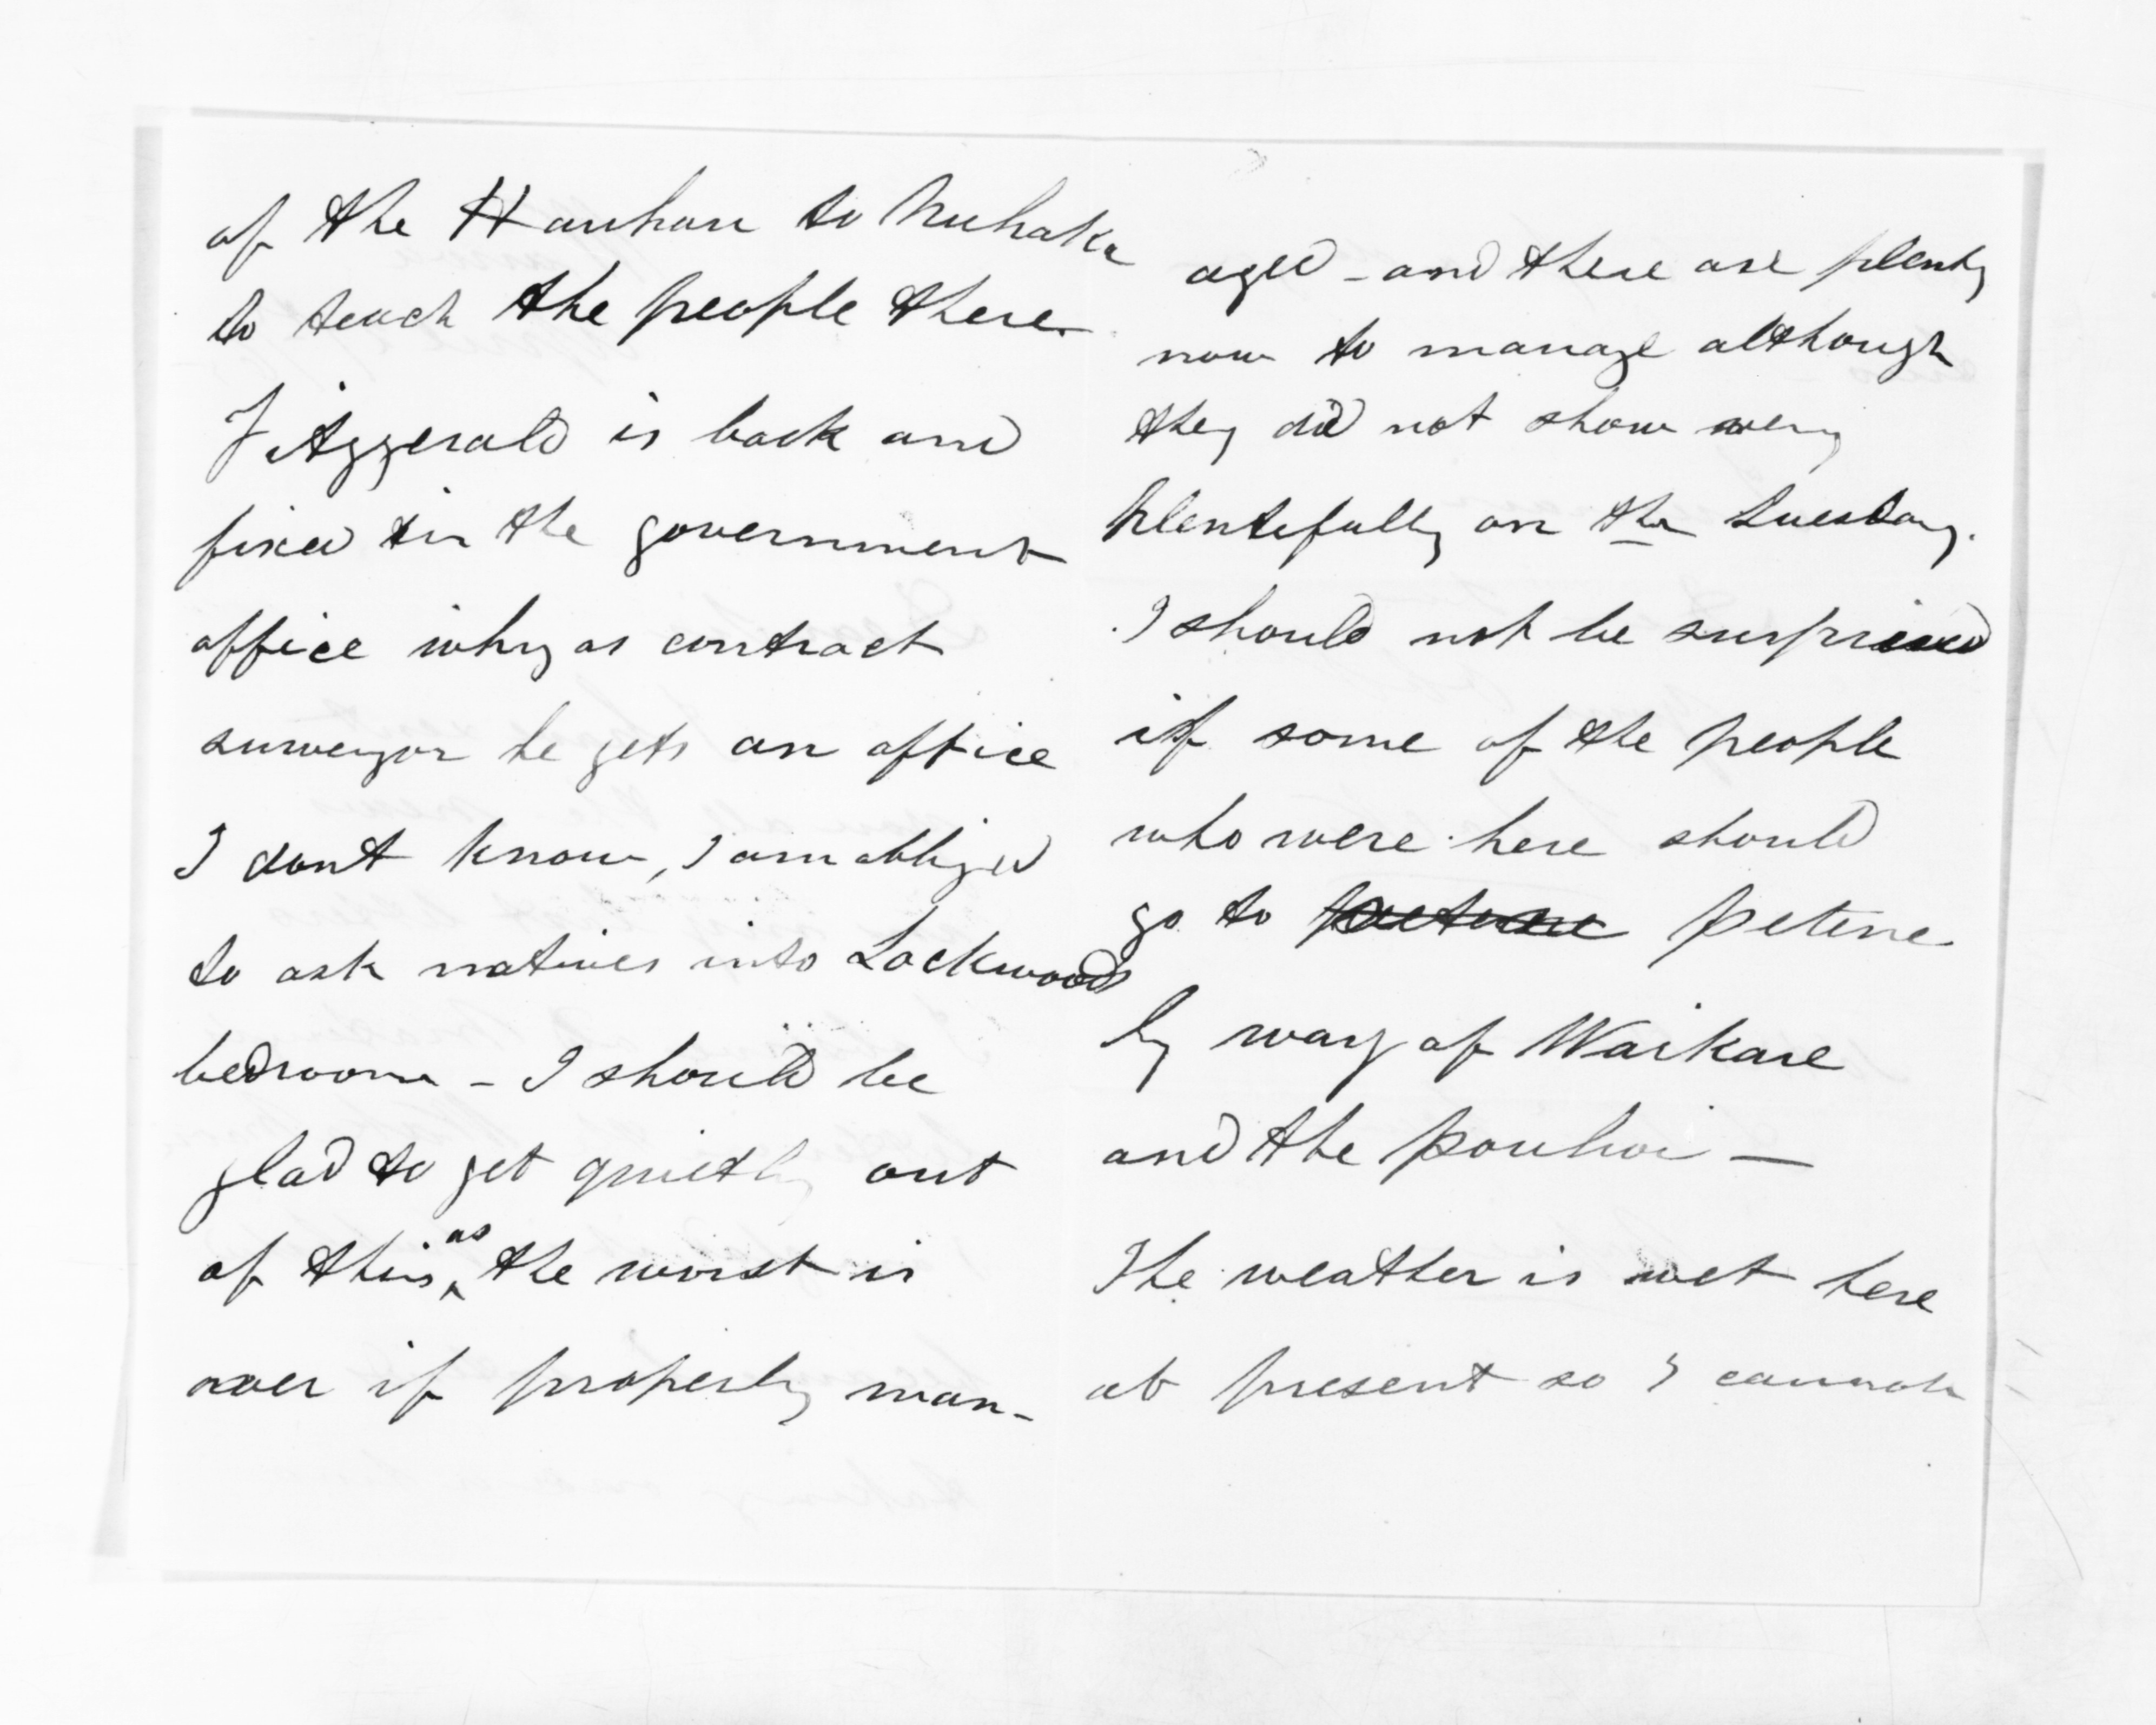 of the Hauhau to Nuhaka
to teach the people there.
Fitzgerald is back and
fixed in the government
office why as contract
surveyor he gets an office
I dont know, I am obliged
to ask natives into Lockwoods
bedroom - I should be
glad to get quietly out
of this as the worst is
over if properly man-
aged - and there are plenty
now to manage although
they did not show very
plentifully on the Tuesday.
I should not be surprised
if some of the people
who were here should
go to Petene
by way of Waikare
and the pouhoi -
The weather is wet here
at present so I cannot